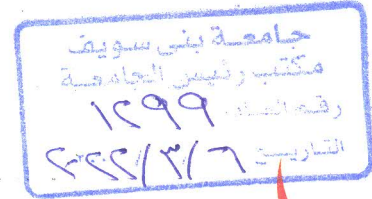 جامعة بنى سويف
مكتب رئيس الجامعة
رقم القيد ١٢٩٩
التاريخ ٢٠٢٢/٣/٦